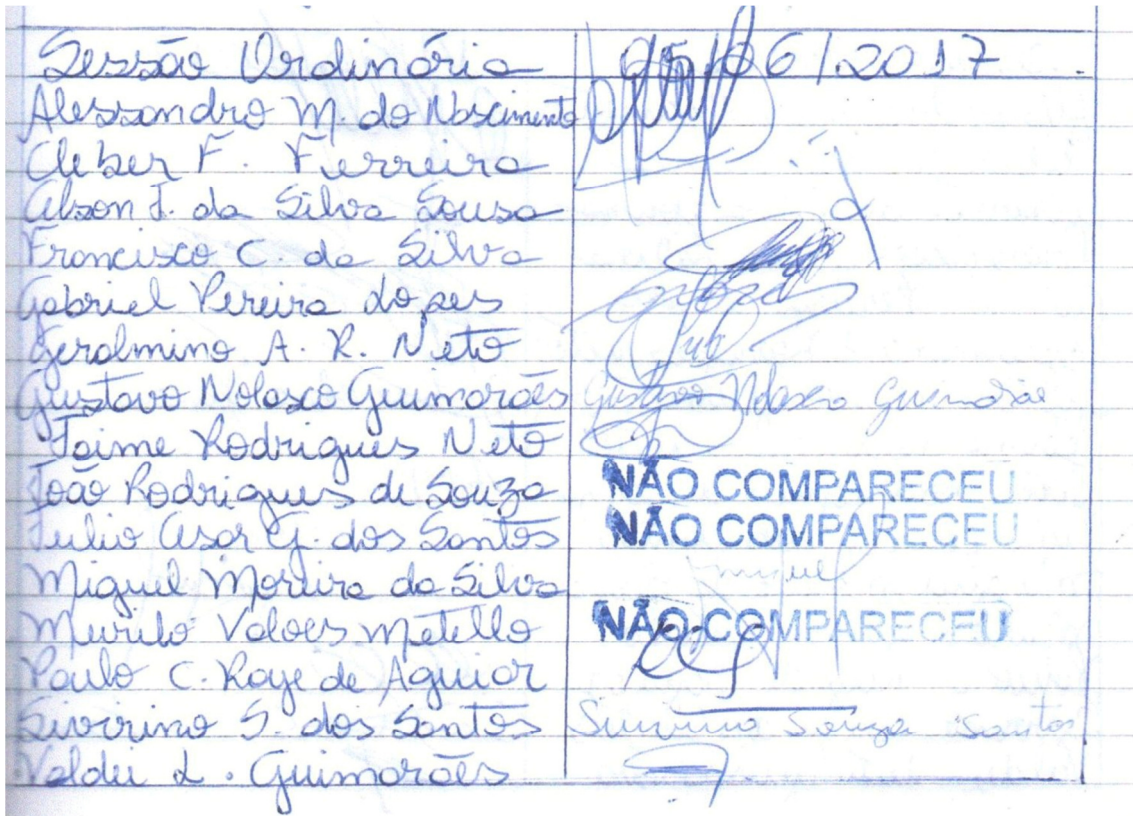 Sessão Ordinária 05/06/2017
Alessandro M. do Nascimento
Cleber F. Ferreira
Elson F. da Silva Sousa
Francisco C. da Silva
Gabriel Pereira Lopes
Geralmino A. R. Neto
Gustavo Nolasco Guimarães Gustavo Nolasco Guimarães
Jaime Rodrigues Neto
João Rodrigues de Souza NÃO COMPARECEU
Julio Cesar G. dos Santos NÃO COMPARECEU
Miguel Moreira da Silva Miguel
Murilo Valoes Metello NÃO COMPARECEU
Paulo C. Raye de Aguiar
Sivirino S. dos Santos Souza Santos
Valdei L. Guimarães